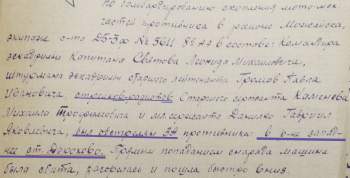 по бомбардированию скопления мотомех-
частей противника в районе Можайска,
экипаж с-та ДБ-3ф № 5611 в составе: Командира
эскадрильи Капитана Светова Леонида Михайловича,
штурмана эскадрильи старшего лейтенанта Громова Павла
Ивановича стрелков-радистов Старшего сержанта
Михаила Трофимовича и мл. сержанта Данилко Гавриил
Яковлевича, был обстрелян ЗА противника в р-не запад-
нее ст. Дорохово. Прямым попаданием снаряда машина
была сбита, загорелась и пошла быстро вниз.